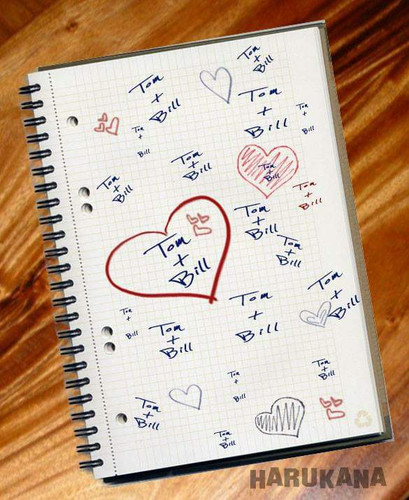 Tom
+
Bill
Tom
+
Bill
Tom
+
Bill
Tom
+
Bill
Tom
+
Bill
Tom
+
Bill
Tom
+
Bill
Tom
+
Bill
Tom
+
Bill
Tom
+
Bill
Tom
+
Bill
Tom
+
Bill
Tom
+
Bill
Tom
+
Bill
Tom
+
Bill
Tom
+
Bill
Tom
+
Bill
Tom
+
Bill
Tom
+
Bill
Tom
+
Bill
HARUKANA